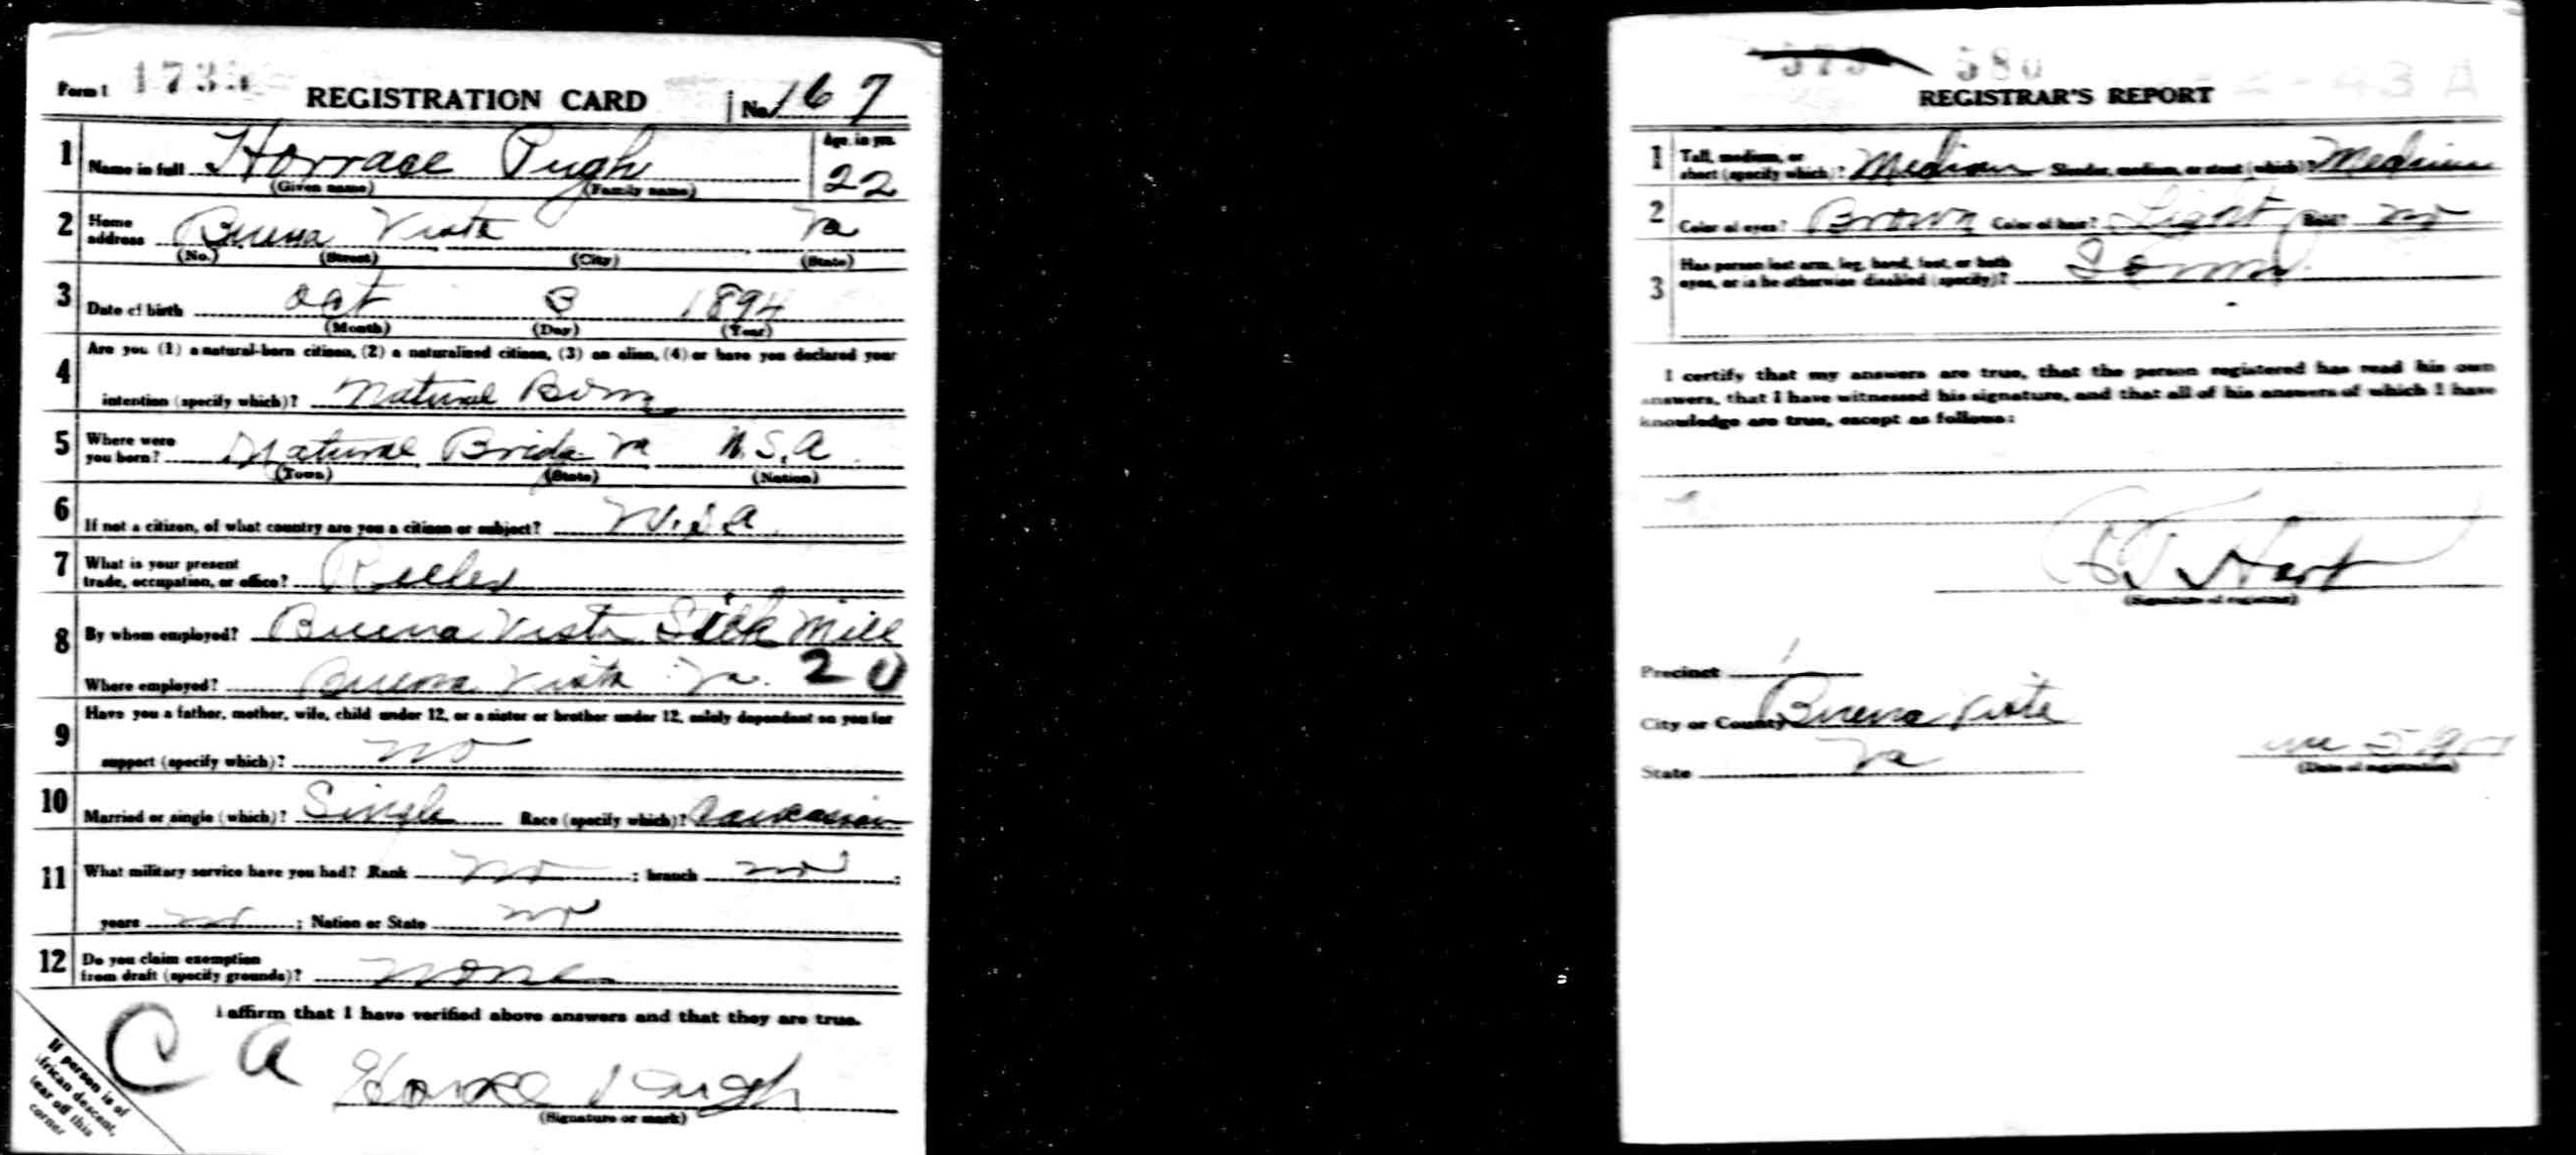 Form 1 173
REGISTRATION CARD No. 167
1 Name in full Horrace Pugh Age, in yrs. 22
(Given name) (Family name)
2 Home address Buena Vista Va
(No.) (Street) (City) (State)
3 Date of birth Oct 3 1894
(Month) (Day) (Year)
4 Are you (1) a natural-born citizen, (2) a naturalized citizen, (3) an alien, (4) or have you declared your
intention (specify which)? Natural Born
5 Where were you born? Natural Bridg Va U.S.A
(Town) (State) (Nation)
6 If not a citizen, of what country are you a citizen or subject? U.S.A.
7 What is your present
trade, occupation, or office?
8 By whom employed? Buena Vista Silk Mill
Where employed? Buena Vista Va. 20
9 Have you a father, mother, wife, child under 12, or a sister or brother under 12, solely dependent on you for
support (specify which)? no
10 Married or single (which)? Single Race (specify which)? Caucasian
11 What military service have you had? Rank no ; branch no ;
years no ; Nation or State no
12 Do you claim exemption
from draft (specify grounds)? none
I affirm that I have verified above answers and that they are true.
C A Horrace Pugh
(Signature or mark)
If person is of
African descent,
tear off this
corner
573 580 43 A
REGISTRAR'S REPORT
1 Tall, medium, or
short (specify which)? Medium Slender, medium, or stout (which)? Medium
2 Color of eyes? Brown Color of hair? Light Bald? no
3 Has person lost arm, leg, hand, foot, or both
eyes, or is he otherwise disabled (specify)?
I certify that my answers are true, that the person registered has read his own
answers, that I have witnessed his signature, and that all of his answers of which I have
knowledge are true, except as follows:
Hart
(Signature of registrar)
Precinct 1
City or County Buena Vista
State Va
(Date of registration)